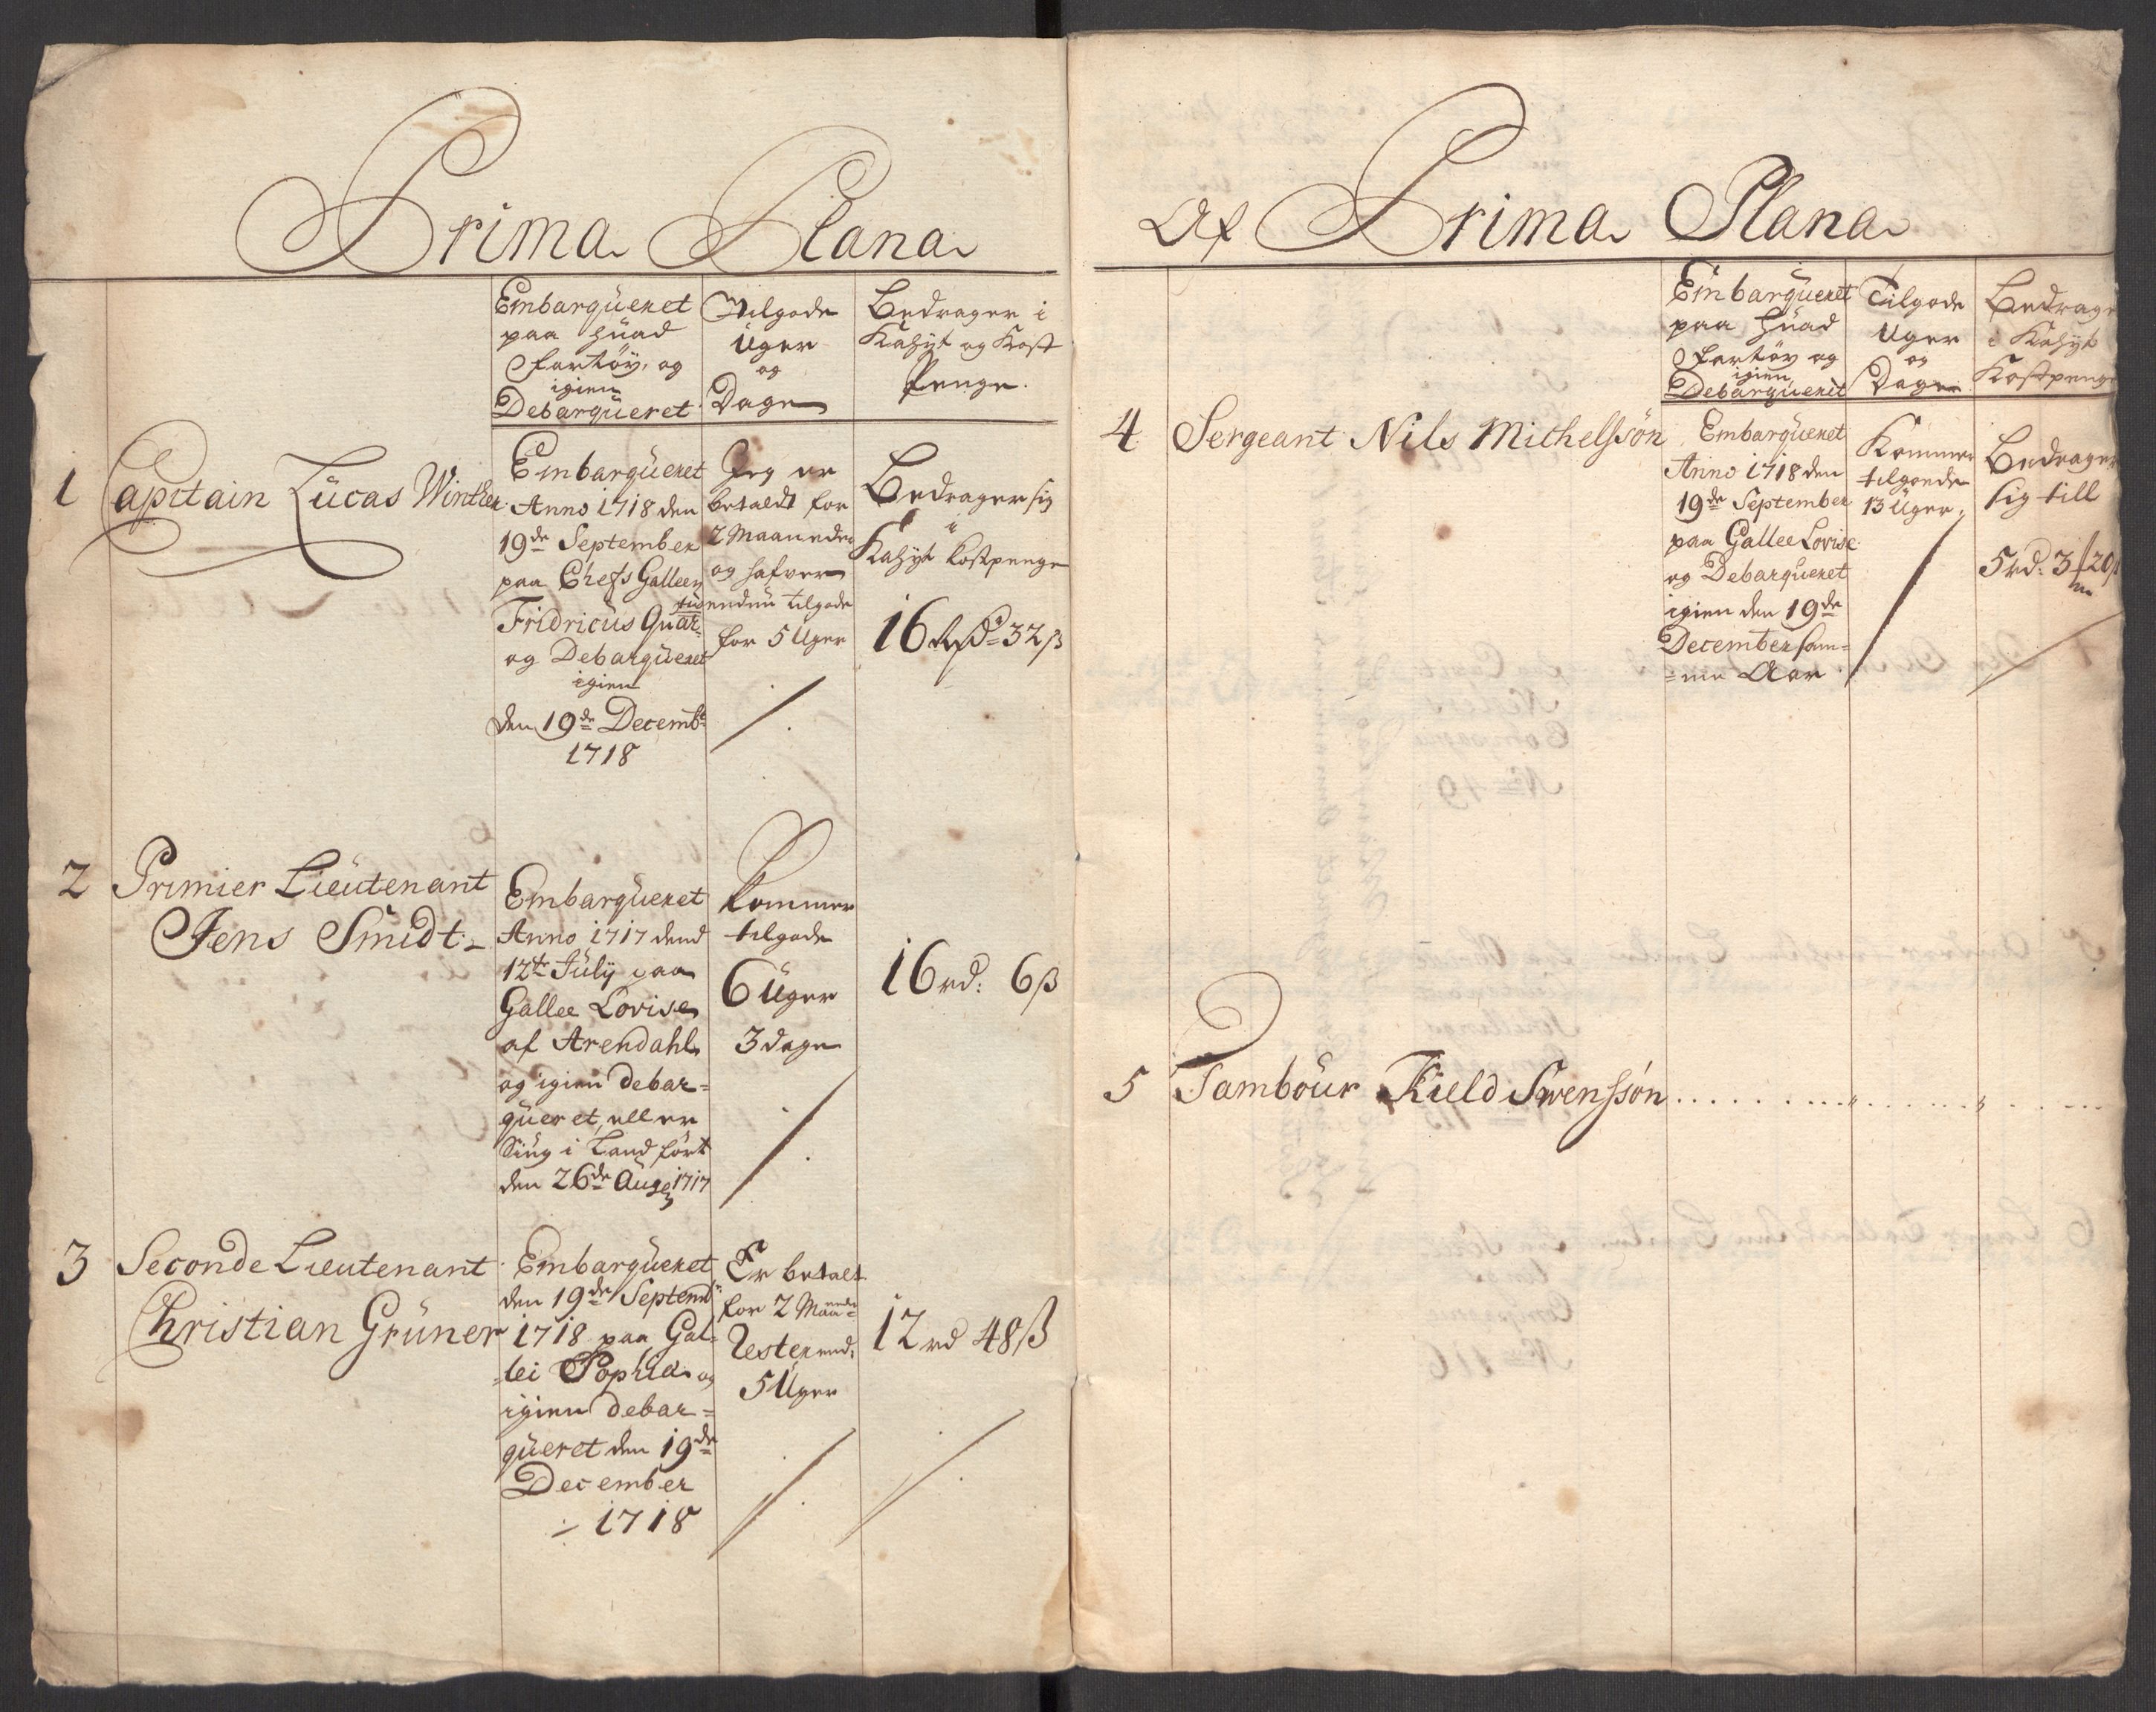 Prima Plana
Embarqüeret
paa hüad
fartöy, og
igien
Debarqüeret
Tilgode
Uger
og
Dage
Bedrager i
Kahÿt og Kost
Penge.
1 Capitain Lücas Winther
Embarqüeret
Anno 1718 den
19de September
paa Chefs Galleen
Fridricüs Quar-
tus
og Debarqüeret
igien
den 19de Decembr
1718
Jeg er
betaldt for
2 Maaneder
og hafver
endnü tilgode
for 5 Uger
Bedrager sig
i
Kahÿt kostpenge
16 Rd 32 ß
2 Primier Lieütenant
Jens Smidt
Embarqüeret
Anno 1717 dend
12te Jülÿ paa
Gallee Lovise
af Arendahl
og igien debar=
qüeret, eller
Siüg i Land ført
den 26de Aug 1717
Kommer
tilgode
6 Uger
3 dage
16 rd: 6 ß
3 Seconde Lieutenant
Christian Grüner
Embarqüeret
den 19de Septembr
1718 paa Gal-
lei Sophia og
igien debar=
qüeret den 19de
December
1718
Er betalt
for 2 Maaneder
Resterend:
5 Uger
12 rd 48 ß
Af Prima Plana
Embarqüeret
paa hüad
fartöy og
igien
Debarqüerit
Tilgode
Uger
og
Dage
Bedrage
i Kahÿt
Kostpenge
4 Sergeant Nils Michelssön
Embarqüeret
Anno 1718 den
19de September
paa Gallee Lovise
og Debarqüeret
igien den 19de
December sam=
=me Aar
Kommer
tilgode
13 Uger
Bedrager
sig till
5 rd: 3 20 ß
5 Tamboür Kield Swenssön